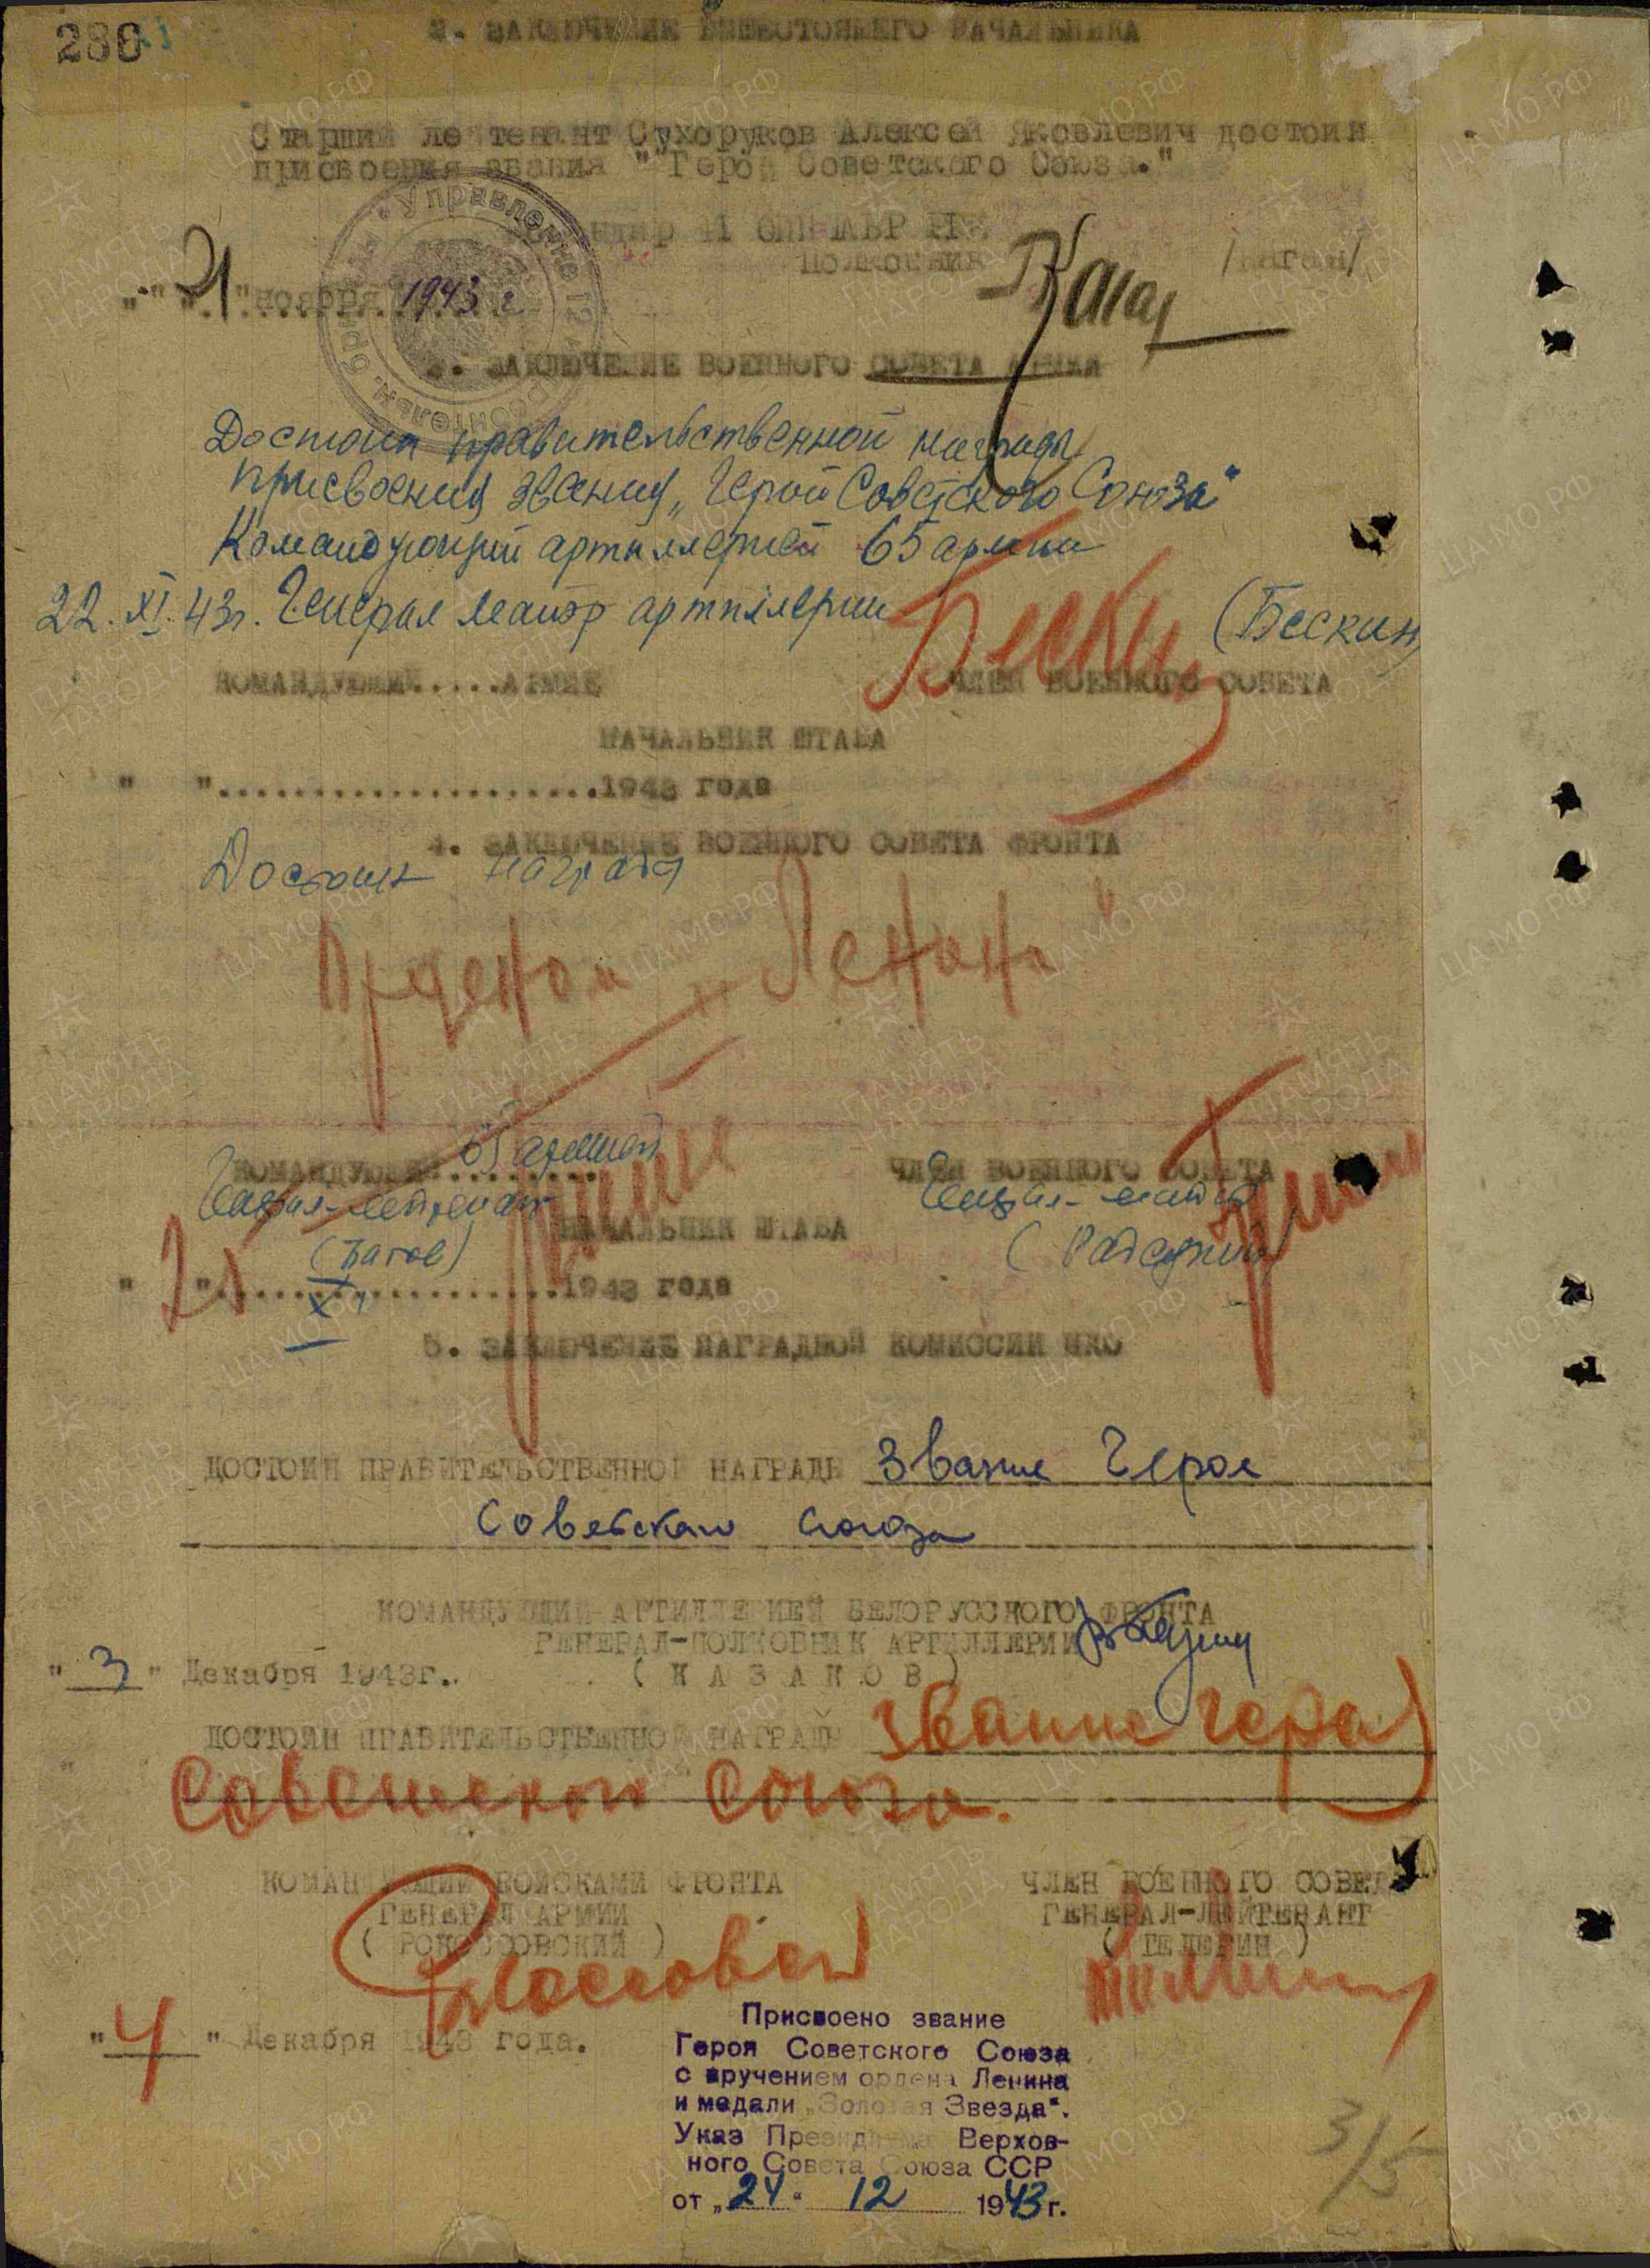 286
2. ЗАКЛЮЧЕНИЕ ВЫШЕСТОЯЩЕГО НАЧАЛЬНИКА
Старший лейтенант Сухоруков Алексей Яковлевич достоин
присвоения звания "Герой Советского Союза."
Полковник
/Каган/
"21" ноября 1943 г
3. ЗАКЛЮЧЕНИЕ ВОЕННОГО СОВЕТА АРМИИ
Достоин правительственной награды
присвоения звания „Герой Советского Союза"
Командующий артиллерией 65 армии
22.XI.43г. Генерал майор артиллерии Бескин (Бескин)
КОМАНДУЮЩИЙ.....АРМИЕЙ ЧЛЕН ВОЕННОГО СОВЕТА
НАЧАЛЬНИК ШТАБА
" "....................1943 года
4. ЗАКЛЮЧЕНИЕ ВОЕННОГО СОВЕТА ФРОНТА
Достоин награды
Орденом „Ленина"
КОМАНДУЮЩИЙ 65 армией ЧЛЕН ВОЕННОГО СОВЕТА
Генерал-лейтенант Генерал-майор
НАЧАЛЬНИК ШТАБА
(Батов) (Радецкий)
"..................1943 года
XI
5. ЗАКЛЮЧЕНИЕ НАГРАДНОЙ КОМИССИИ НКО
ДОСТОИН ПРАВИТЕЛЬСТВЕННОЙ НАГРАДЫ Звание Героя
Советского Союза
КОМАНДУЮЩИЙ АРТИЛЛЕРИЕЙ БЕЛОРУССКОГО ФРОНТА
ГЕНЕРАЛ-ПОЛКОВНИК АРТИЛЛЕРИИ
"3" Декабря 1943г. (КАЗАКОВ)
ДОСТОИН ПРАВИТЕЛЬСТВЕННОЙ НАГРАДЫ Звание Героя
Советского Союза.
КОМАНДУЮЩИЙ ВОЙСКАМИ ФРОНТА ЧЛЕН ВОЕННОГО СОВЕТА
ГЕНЕРАЛ АРМИИ ГЕНЕРАЛ-ЛЕЙТЕНАНТ
(РОКОССОВСКИЙ) (ТЕЛЕГИН)
"4" Декабря 1943 года.
Присвоено звание
Героя Советского Союза
с вручением ордена Ленина
и медали „Золотая Звезда".
Указ Президиума Верхов-
ного Совета Союза ССР
от „24" 12 1943 г.
3/5